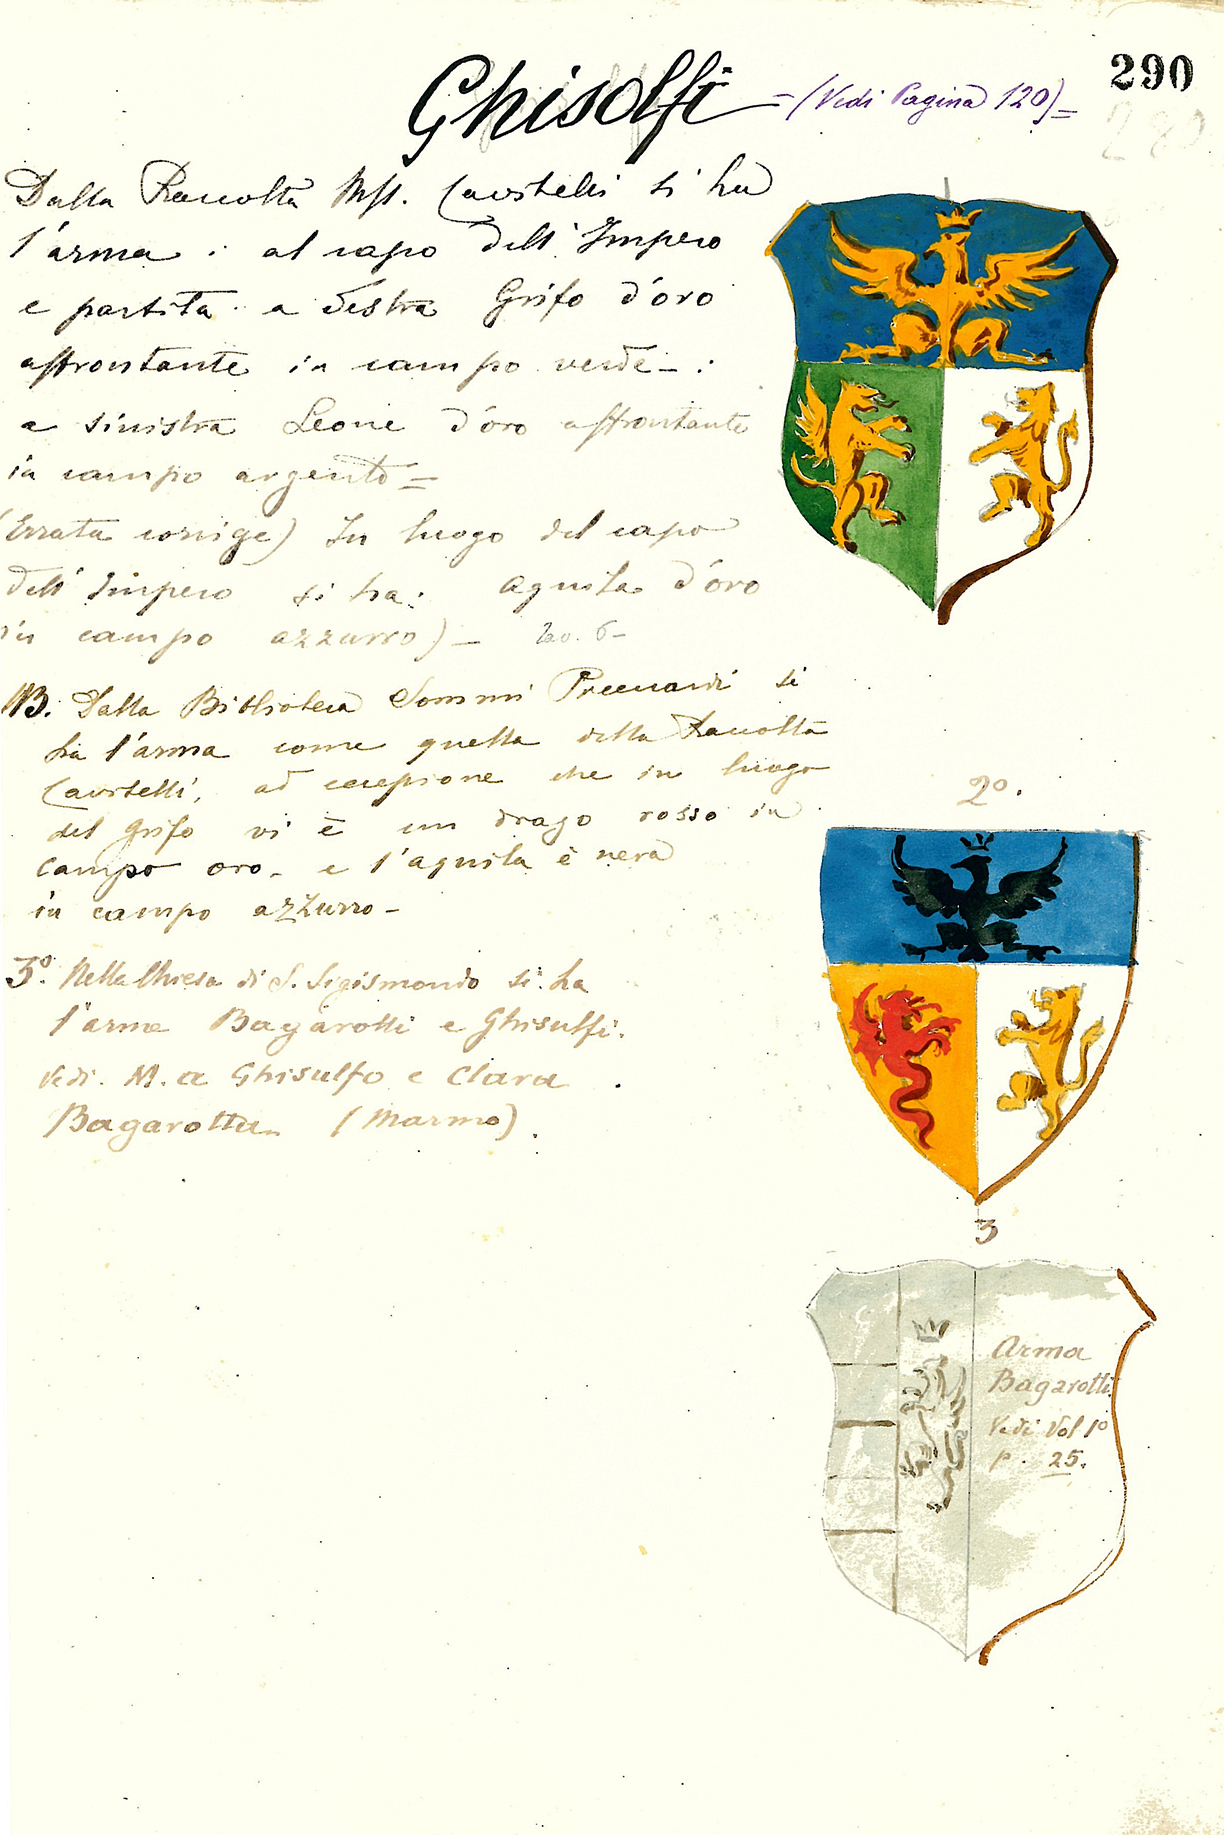 290
Ghisolfi - (Vedi Pagina 120) =
280
Dalla Raccolta Mss. Caostelli si ha
l'arma : al capo dell' Impero
e partita a destra Grifo d'oro
affrontante in campo verde - :
a sinistra Leone d'oro affrontante
in campo argento =
(Errata corrige) In luogo del capo
dell' Impero si ha: aquila d'oro
in campo azzurro) - 6 -
NB. Dalla Biblioteca Sommi Picenardi si
ha l'arma come quella della Raccolta
Caostelli, ad eccepione che in luogo
del Grifo vi è un drago rosso in
campo oro - e l'aquila è nera
in campo azzurro -
3º. Nella Chiesa di S. Sigismondo si ha
l'arme Bagarotti e Ghisulfi.
Vedi. M.a Ghisulfo e Clara
Bagarotta - (Marmo).
2º.
3
Arma
Bagarotti
Vedi Vol 1º
p. 25.